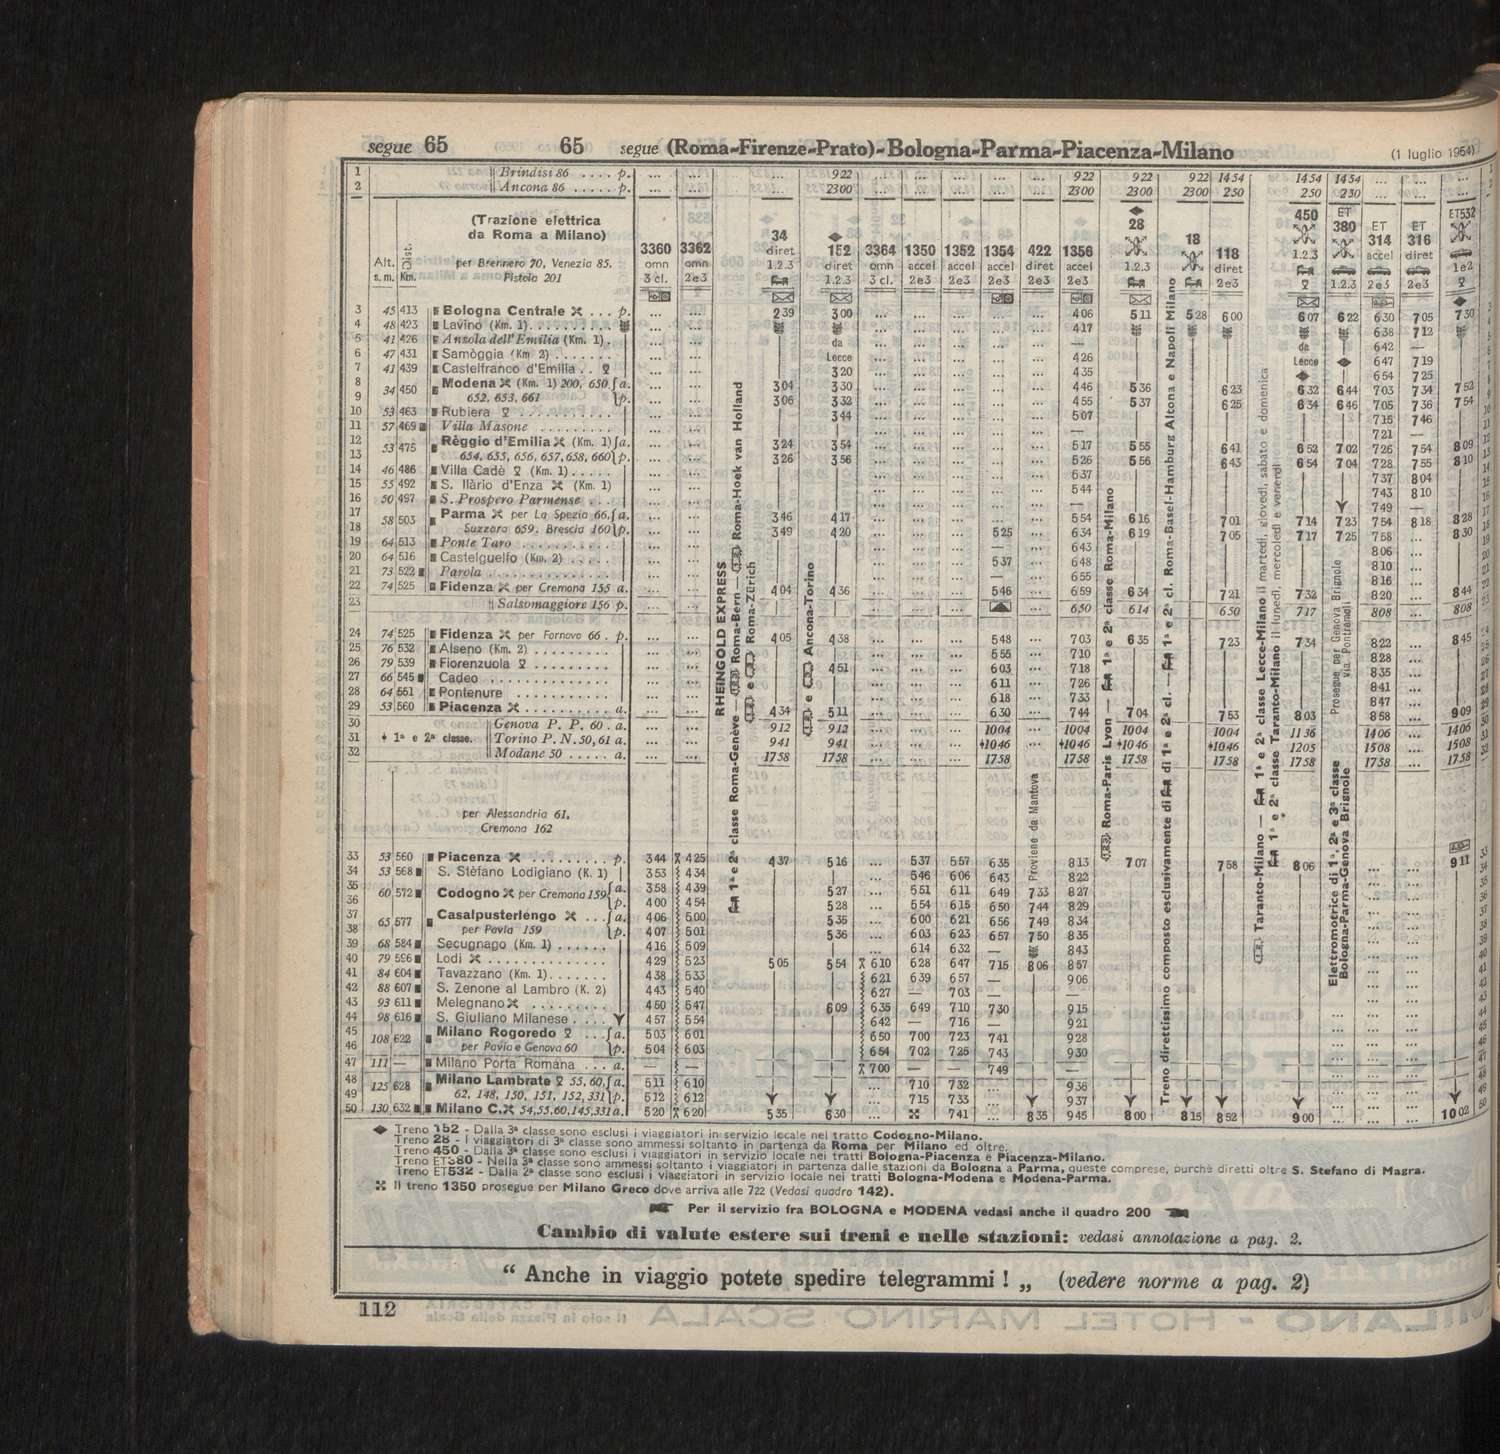 segue 65 65 segue (Roma-Firenze-Prato)-Bologna-Parma-Piacenza-Milano (1 luglio 1954)
1 Brindisi 86 .... p. ... ... ... 922 ... ... ... ... ... 922 922 922 1454 1454 1454 ... ... ...
2 Ancona 86 ..... p. ... ... ... 2300 ... ... ... ... ... 2300 2300 2300 250 250 230 ... ... ...
(Trazione elettrica
da Roma a Milano)
Alt. s. m. Dist. Km.
per Brennero 70, Venezia 85.
Pistoia 201
3360 omn 3 cl.
3362 omn 2e3
34 diret 1.2.3
152 diret 1.2.3
3364 omn 3 cl.
1350 accel 2e3
1352 accel 2e3
1354 accel 2e3
422 diret 2e3
1356 accel 2e3
28 1.2.3
18
118 diret 2e3
450 1.2.3
ET 380 1.2.3
ET 314 accel 2e3
ET 316 diret 2e3
ET532 1e2
3 45 413 Bologna Centrale ... p. ... ... 239 300 ... ... ... ... ... 406 511 528 600 607 622 630 705 730
4 48 423 Lavino (Km. 1) ... ... 417 638 712
5 41 426 Anzola dell'Emilia (Km. 1) . ... ... da — da 642 —
6 47 431 Samòggia (Km 2) ... ... Lecce 426 Lecce 647 719
7 41 439 Castelfranco d'Emilia .. ... ... 320 435 654 725
8 34 450 Modena (Km. 1) 200, 650. a. ... ... 304 330 446 536 623 632 644 703 734 752
9 652, 653, 661 p. ... ... 306 332 455 537 625 634 646 705 736 754
10 53 463 Rubiera ... ... 344 507 715 746
11 57 469 Villa Masone ... ... — 721 —
12 53 475 Règgio d'Emilia (Km. 1) a. ... ... 324 354 517 555 641 652 702 726 754 809
13 654, 655, 656, 657, 658, 660 p. ... ... 326 356 526 556 643 654 704 728 755 810
14 46 486 Villa Cadè (Km. 1) ... ... 537 737 804
15 55 492 S. Ilàrio d'Enza (Km. 1) ... ... 544 743 810
16 50 497 S. Prospero Parmense ... ... — 749 —
17 58 503 Parma per La Spezia 66. a. ... ... 346 417 554 616 701 714 723 754 818 828
18 Suzzara 659, Brescia 160 p. ... ... 349 420 525 634 619 705 717 725 758 ... 830
19 64 513 Ponte Taro ... ... — 643 806
20 64 516 Castelguelfo (Km. 2) ... ... 537 648 810
21 73 522 Parola ... ... — 655 816
22 74 525 Fidenza per Cremona 155 a. ... ... 404 436 546 659 634 721 732 820 ... 844
23 Salsomaggiore 156 p. ... ... 650 614 650 717 808 ... 808
24 74 525 Fidenza per Fornovo 66 . p. ... ... 405 438 548 703 635 723 734 822 ... 845
25 76 532 Alseno (Km. 2) ... ... 555 710 828
26 79 539 Fiorenzuola ... ... 451 603 718 835
27 66 545 Cadeo ... ... 611 726 841
28 64 551 Pontenure ... ... 618 733 847
29 53 560 Piacenza a. ... ... 434 511 630 744 704 753 803 858 ... 909
30 Genova P. P. 60 . a. ... ... 912 912 1004 1004 1004 1004 1136 1406 ... 1406
31 1ª e 2ª classe. Torino P. N. 50, 61 a. ... ... 941 941 1046 1046 1046 1046 1205 1508 ... 1508
32 Modane 50 ..... a. ... ... 1758 1758 1758 1758 1758 1758 1758 1758 ... 1758
per Alessandria 61,
Cremona 162
33 53 560 Piacenza p. 344 425 437 516 ... 537 557 635 813 707 758 806 911
34 53 568 S. Stèfano Lodigiano (K. 1) 353 434 546 606 643 822
35 60 572 Codogno per Cremona 159 a. 358 439 527 551 611 649 733 827
36 p. 400 454 528 554 615 650 744 829
37 65 577 Casalpusterlengo ... a. 406 500 535 600 621 656 749 834
38 per Pavia 159 p. 407 501 536 603 623 657 750 835
39 68 584 Secugnago (Km. 1) 416 509 614 632 — 843
40 79 596 Lodi 429 523 505 554 610 628 647 715 806 857
41 84 604 Tavazzano (Km. 1) 438 533 621 639 657 — 906
42 88 607 S. Zenone al Lambro (K. 2) 443 540 627 — 703 — —
43 93 611 Melegnano 450 547 609 635 649 710 730 915
44 98 616 S. Giuliano Milanese 457 554 642 — 716 — 921
45 108 622 Milano Rogoredo ... a. 503 601 650 700 723 741 928
46 per Pavia e Genova 60 p. 504 603 654 702 725 743 930
47 111 — Milano Porta Romana ... a. — — 700 — — 749 —
48 125 628 Milano Lambrate 55, 60, a. 511 610 ... 710 732 ... 936
49 62, 148, 150, 151, 152, 331 p. 512 612 ... 715 733 ... 937
50 130 632 Milano C. 54, 55, 60, 145, 331 a. 520 620 535 630 ... 741 ... 835 945 800 815 852 900 1002
RHEINGOLD EXPRESS
1ª e 2ª classe Roma-Genève — Roma-Bern — Roma-Hoek van Holland
e Roma-Zürich
e Ancona-Torino
Proviene da Mantova
Roma-Paris Lyon — 1ª e 2ª classe Roma-Milano
Treno direttissimo composto esclusivamente di di 1ª e 2ª cl. — 1ª e 2ª cl. Roma-Basel-Hamburg Altona e Napoli Milano
Taranto-Milano — 1ª e 2ª classe Lecce-Milano il martedì, giovedì, sabato e domenica
1ª e 2ª classe Taranto-Milano il lunedì, mercoledì e venerdì
Elettromotrice di 1ª, 2ª e 3ª classe
Bologna-Parma-Genova Brignole
Prosegue per Genova Brignole
via Pontremoli
Treno 152 - Dalla 3ª classe sono esclusi i viaggiatori in servizio locale nel tratto Codogno-Milano.
Treno 28 - I viaggiatori di 3ª classe sono ammessi soltanto in partenza da Roma per Milano ed oltre.
Treno 450 - Dalla 3ª classe sono esclusi i viaggiatori in servizio locale nei tratti Bologna-Piacenza e Piacenza-Milano.
Treno ET380 - Nella 3ª classe sono ammessi soltanto i viaggiatori in partenza dalle stazioni da Bologna a Parma, queste comprese, purchè diretti oltre S. Stefano di Magra.
Treno ET532 - Dalla 2ª classe sono esclusi i viaggiatori in servizio locale nei tratti Bologna-Modena e Modena-Parma.
Il treno 1350 prosegue per Milano Greco dove arriva alle 722 (Vedasi quadro 142).
Per il servizio fra BOLOGNA e MODENA vedasi anche il quadro 200
Cambio di valute estere sui treni e nelle stazioni: vedasi annotazione a pag. 2.
“ Anche in viaggio potete spedire telegrammi ! „ (vedere norme a pag. 2)
112